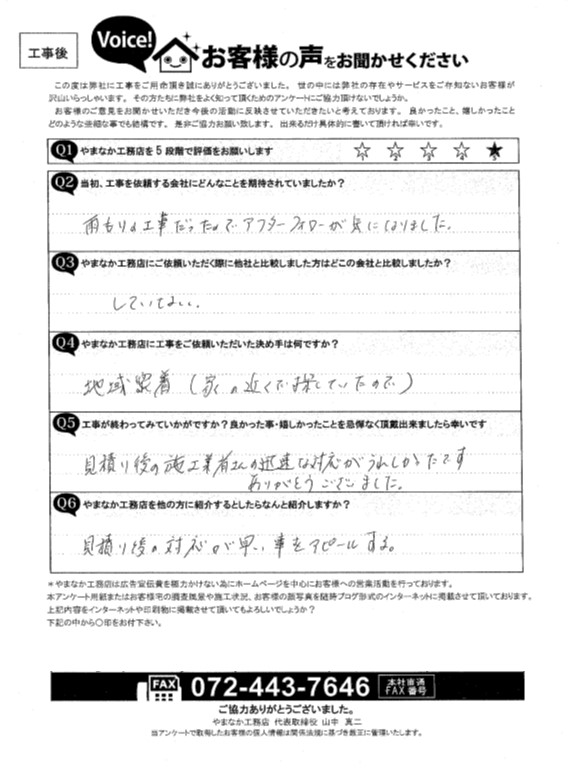 工事後
Voice!
お客様の声をお聞かせください
この度は弊社に工事をご用命頂き誠にありがとうございました。世の中には弊社の存在やサービスをご存知ないお客様が
沢山いらっしゃいます。その方たちに弊社をよく知って頂くためのアンケートにご協力頂けないでしょうか。
お客様のご意見をお聞かせいただき今後の活動に反映させていただきたいと考えております。良かったこと、嬉しかったこと
どのような些細な事でも結構です。是非ご協力お願い致します。出来るだけ具体的に書いて頂ければ幸いです。
Q1 やまなか工務店を5段階で評価をお願いします
Q2 当初、工事を依頼する会社にどんなことを期待されていましたか?
雨もりの工事だったのでアフターフォローが気になりました。
Q3 やまなか工務店にご依頼いただく際に他社と比較しました方はどこの会社と比較しましたか?
していない。
Q4 やまなか工務店に工事をご依頼いただいた決め手は何ですか?
地域密着(家の近くで探していたので)
Q5 工事が終わってみていかがですか?良かった事・嬉しかったことを忌憚なく頂戴出来ましたら幸いです
見積り後の施工業者さんの迅速な対応がうれしかったです
ありがとうございました。
Q6 やまなか工務店を他の方に紹介するとしたらなんと紹介しますか?
見積り後の対応が早い事をアピールする。
*やまなか工務店は広告宣伝費を極力かけない為にホームページを中心にお客様への営業活動を行っております。
本アンケート用紙またはお客様宅の調査風景や施工状況、お客様の顔写真を随時ブログ形式のインターネットに掲載させて頂いております。
上記内容をインターネットや印刷物に掲載させて頂いてもよろしいでしょうか?
下記の中から〇印をお付下さい。
FAX 072-443-7646 本社直通
FAX番号
ご協力ありがとうございました。
やまなか工務店 代表取締役 山中 真二
当アンケートで取得したお客様の個人情報は関係法規に基づき厳正に管理いたします。